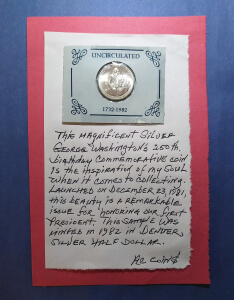 UNCIRCULATED
1732-1982
THIS MAGNIFICENT SILVER
GEORGE WASHINGTON'S 250th.
BIRTHDAY COMMEMORATIVE COIN
IS THE INSPIRATION OF MY SOUL
WHEN IT COMES TO COLLECTING.
LAUNCHED ON DECEMBER 23, 1981,
THIS BEAUTY IS A REMARKABLE
ISSUE FOR HONORING OUR FIRST
PRESIDENT. THIS SAMPLE WAS
MINTED IN 1982 IN DENVER,
SILVER HALF DOLLAR.